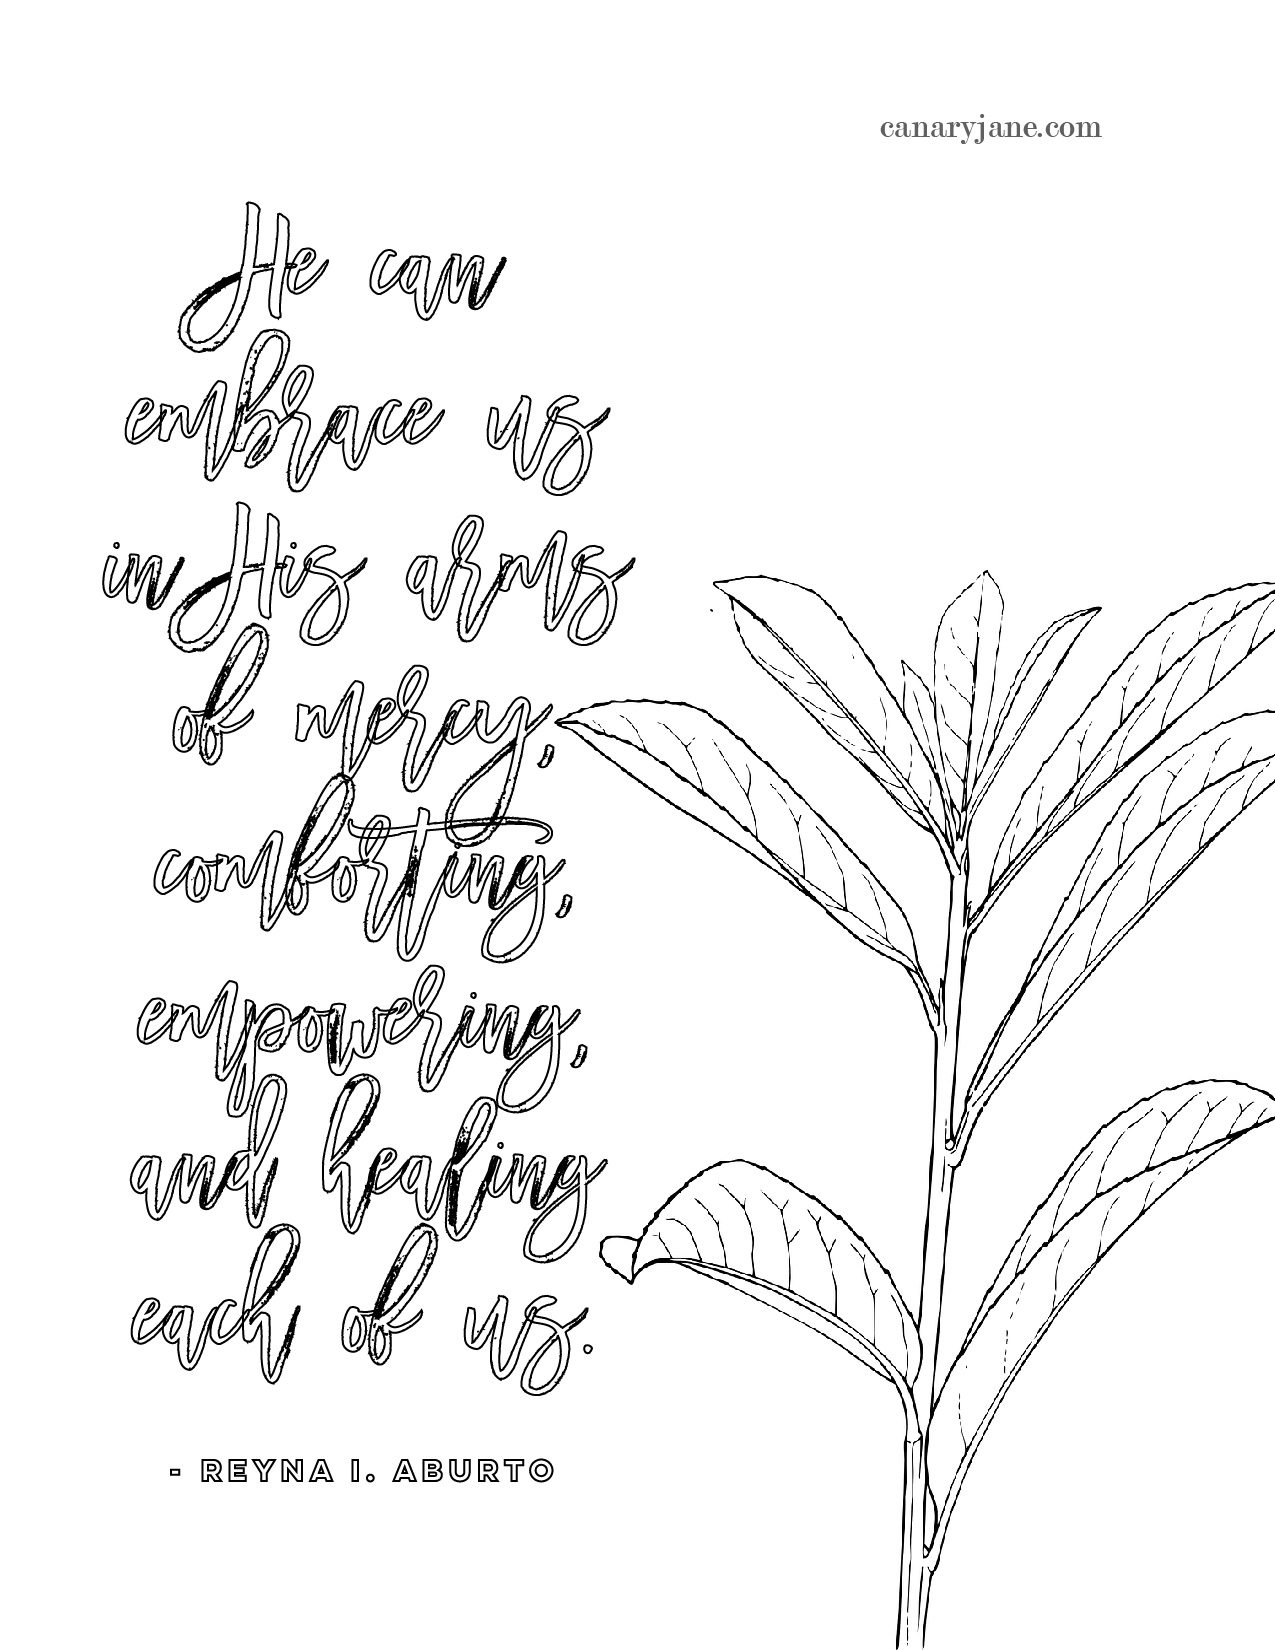 canaryjane.com
He can
embrace us
in His arms
of mercy,
comforting,
empowering,
and healing
each of us.
- REYNA I. ABURTO